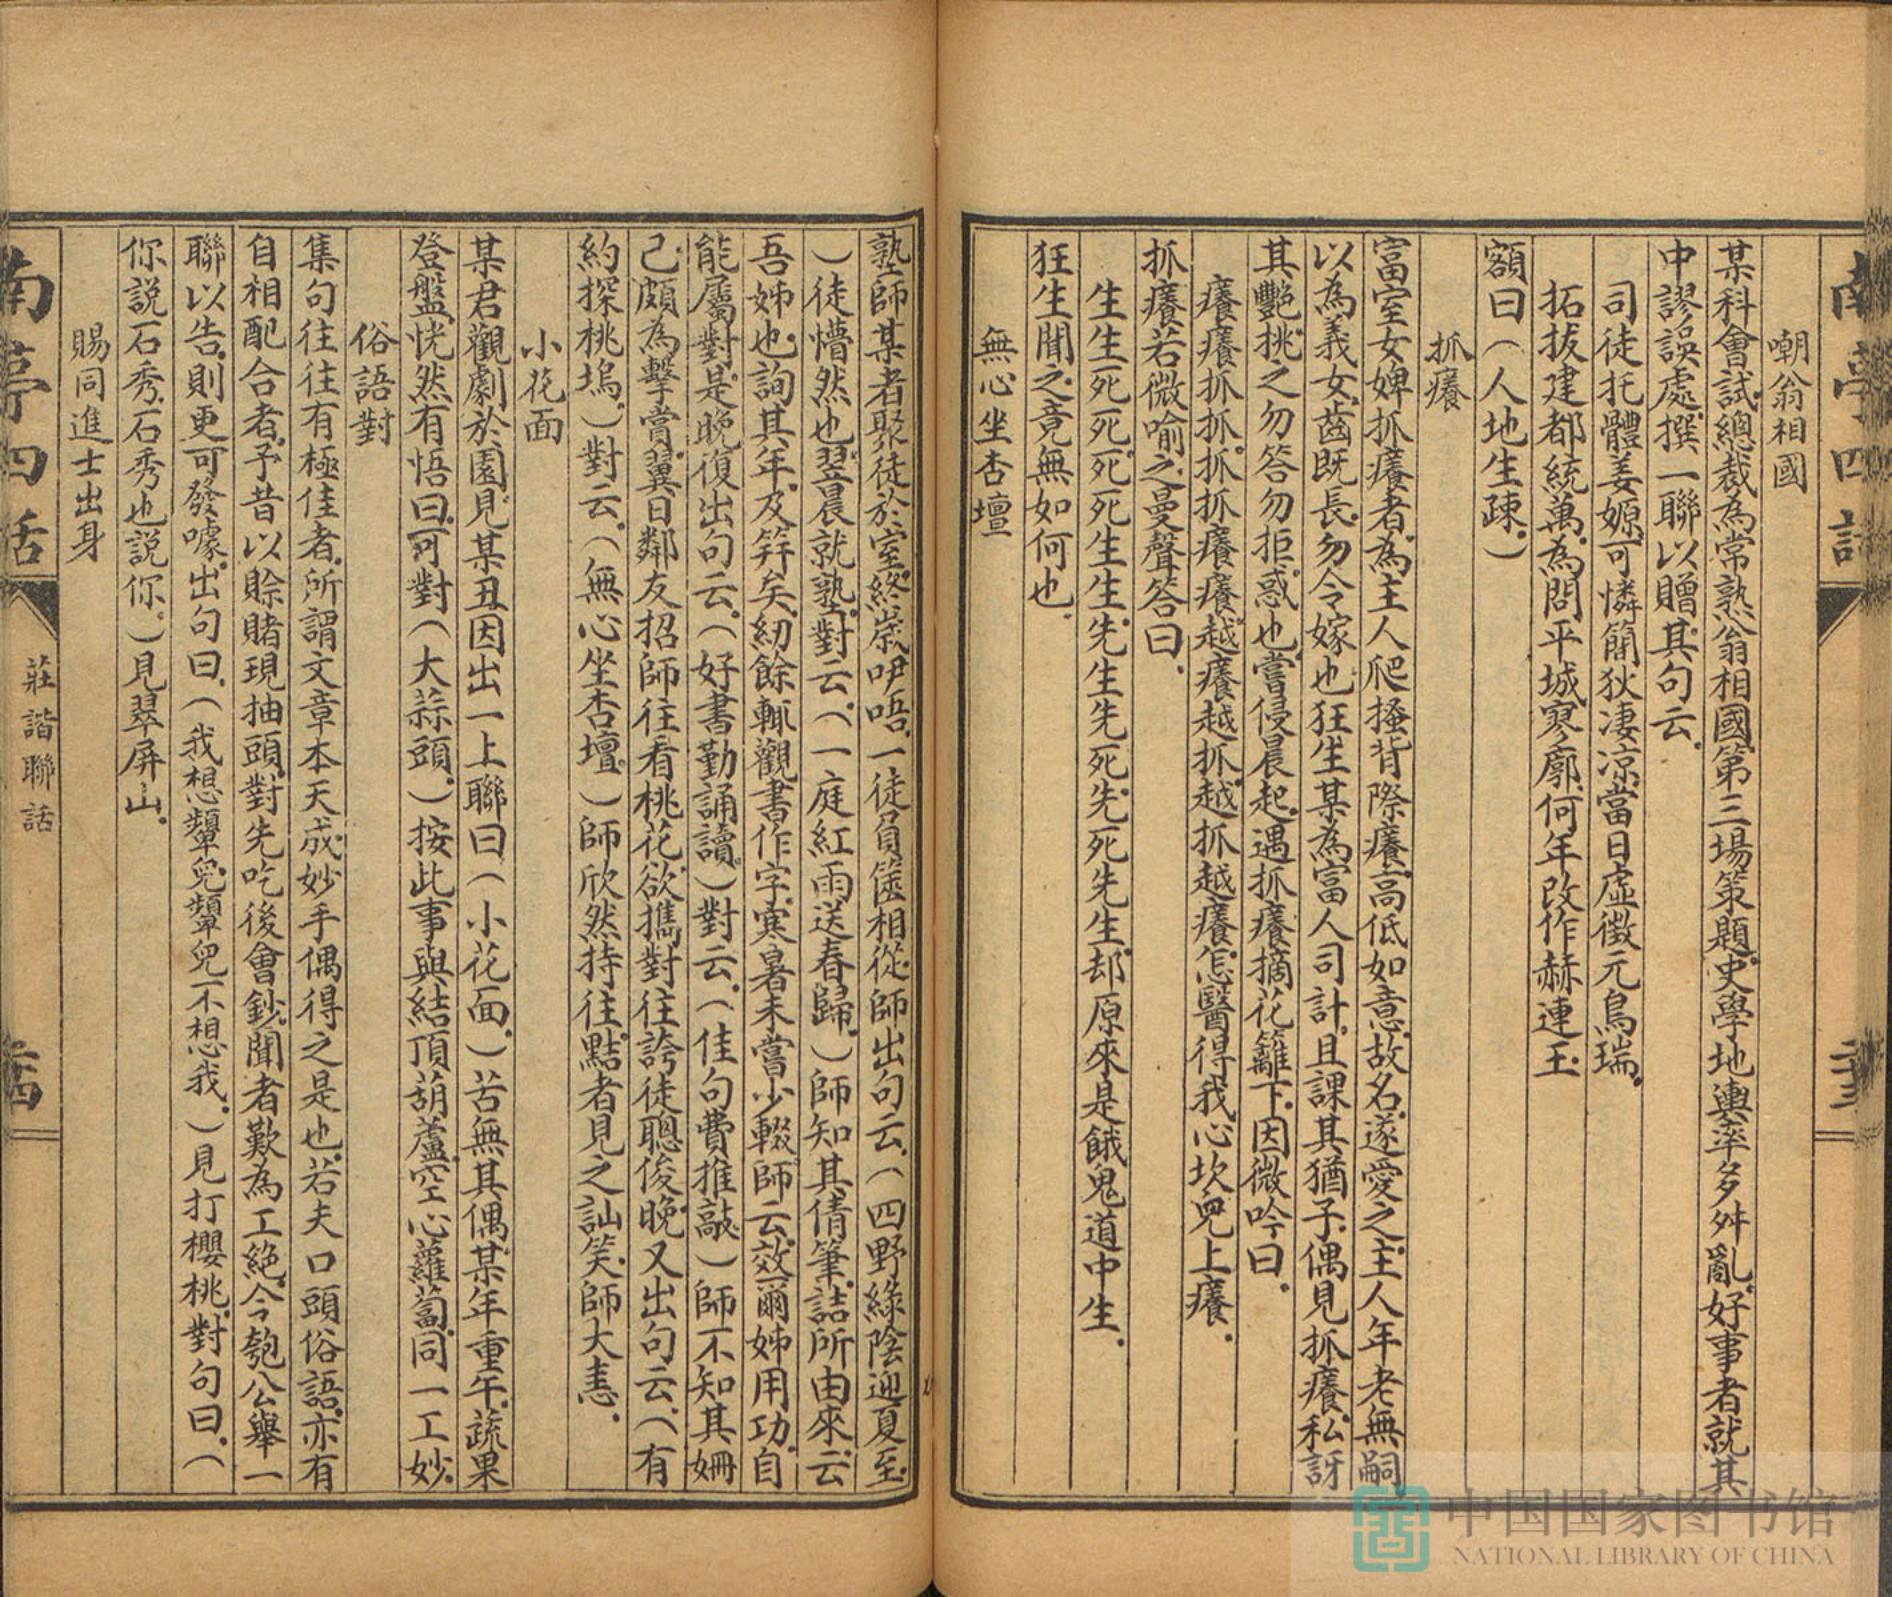 嘲翁相國
某科會試.總裁為常熟翁相國.第三場策題.史學地輿.率多舛亂.好事者就其
中謬誤處.撰一聯以贈.其句云.
司徒托體姜嫄.可憐簡狄凄凉.當日虛徵元鳥瑞.
拓拔建都統萬.為問平城寥廓.何年改作赫連玉.
額曰（人地生疎.）
抓癢
富室女婢抓癢者.為主人爬搔背際癢.高低如意.故名.遂愛之.主人年老無嗣
以為義女.齒既長.勿令嫁也.狂生某為富人司計.且課其猶子.偶見抓癢.私訝
其艷.挑之.勿答勿拒.惑也.嘗侵晨起.遇抓癢摘花籬下.因微吟曰.
癢癢抓抓.抓抓癢癢.越癢越抓.越抓越癢.怎醫得我心坎兒上癢.
抓癢若微喻之.曼聲答曰.
生生死死.死死生生.先生先死.先死先生.却原來是餓鬼道中生.
狂生聞之.竟無如何也.
無心坐杏壇
塾師某者.聚徒於室.終歲咿唔.一徒負篋相從.師出句云.（四野綠陰迎夏至.
）徒懵然也.翌晨就塾.對云.（一庭紅雨送春歸.）師知其倩筆.詰所由來.云
吾姊也.詢其年.及笄矣.紉餘輒觀書作字.寒暑未嘗少輟.師云.效爾姊用功.自
能屬對.是晚復出句云.（好書勤誦讀.）對云.（佳句費推敲.）師不知其姍
己.頗為擊賞.翼日鄰友招師往看桃花.欲擕對往誇徒聰俊.晚又出句云.（有
約探桃塢.）對云.（無心坐杏壇.）師欣然持往.黠者見之訕笑.師大恚.
小花面
某君觀劇於園.見某丑.因出一上聯曰（小花面.）苦無其偶.某年重午.蔬果
登盤.恍然有悟曰.可對（大蒜頭.）按此事與結頂葫蘆.空心蘿蔔.同一工妙.
俗語對
集句往往有極佳者.所謂文章本天成.妙手偶得之是也.若夫口頭俗語.亦有
自相配合者.予昔以賒賭現抽頭.對先吃後會鈔.聞者歎為工絕.今匏公舉一
聯以告.則更可發噱.出句曰.（我想顰兒.顰兒不想我.）見打櫻桃.對句曰.（
你說石秀.石秀也說你.）見翠屏山.
賜同進士出身
南亭四話
莊諧聯話
中国国家图书馆
NATIONAL LIBRARY OF CHINA